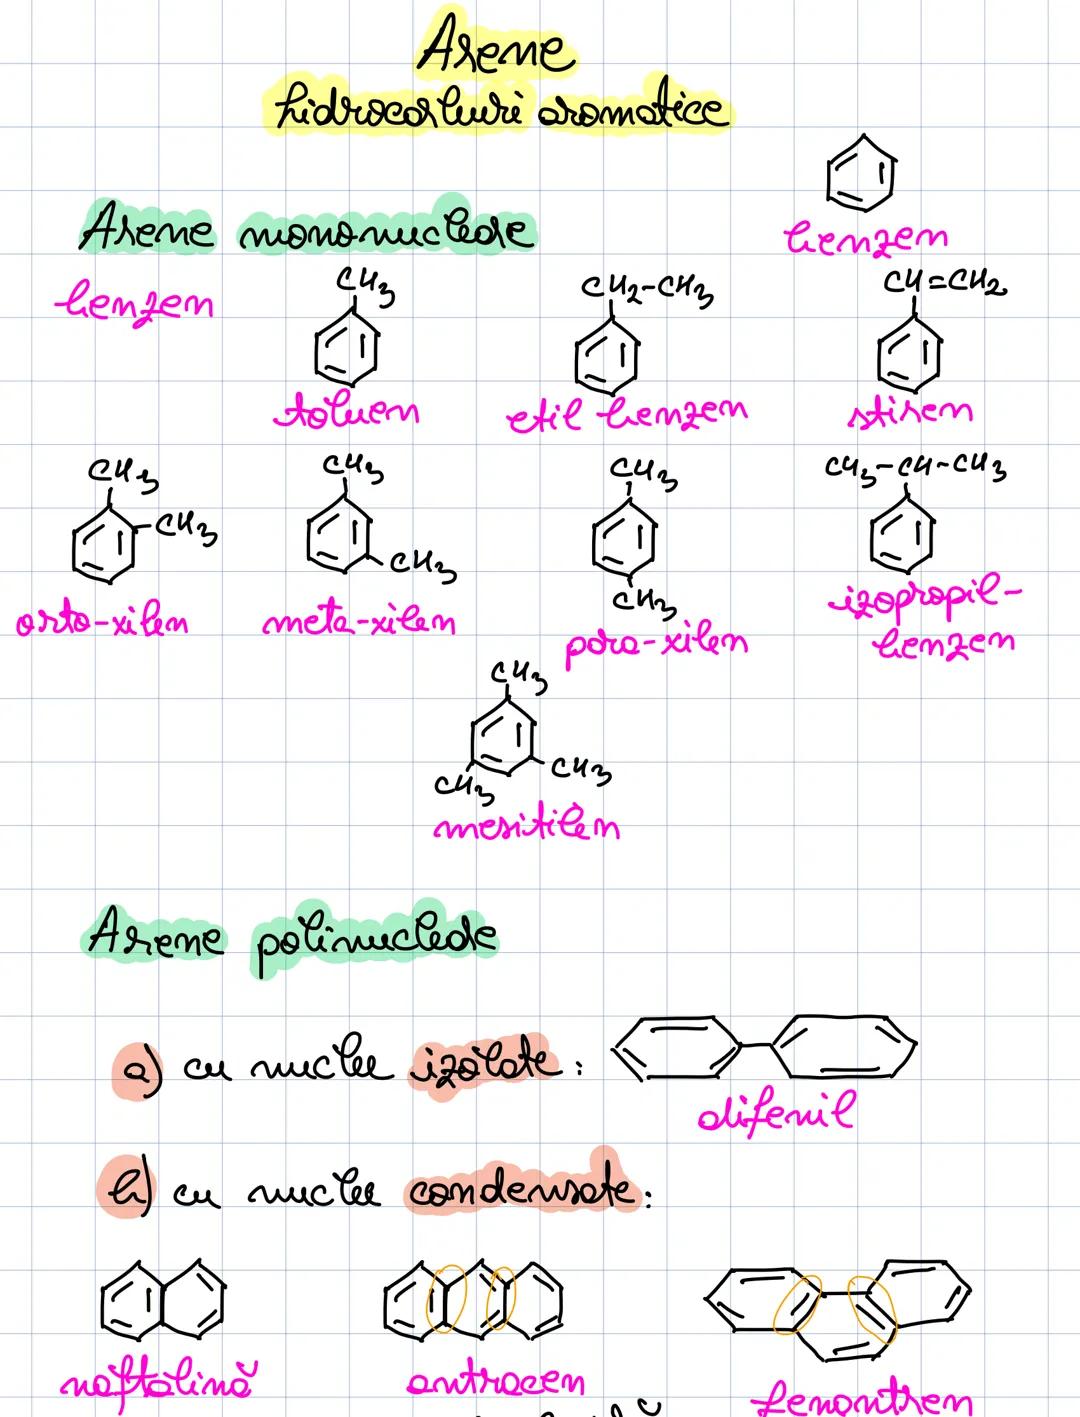 Arene
hidrocarburi aromatice
Arene mononucleare
benzen
benzen
CH3
toluen
CH2-CH3
etil benzen
CH=CH2
stiren
CH3
CH3
orto-xilen
CH3
CH3
meta-xilen
CH3
CH3
para-xilen
CH3-CH-CH3
izopropil-
benzen
CH3
CH3
CH3
mesitilen
Arene polinucleare
a) cu nuclee izolate:
difenil
b) cu nuclee condensate:
naftalină
antracen
fenantren